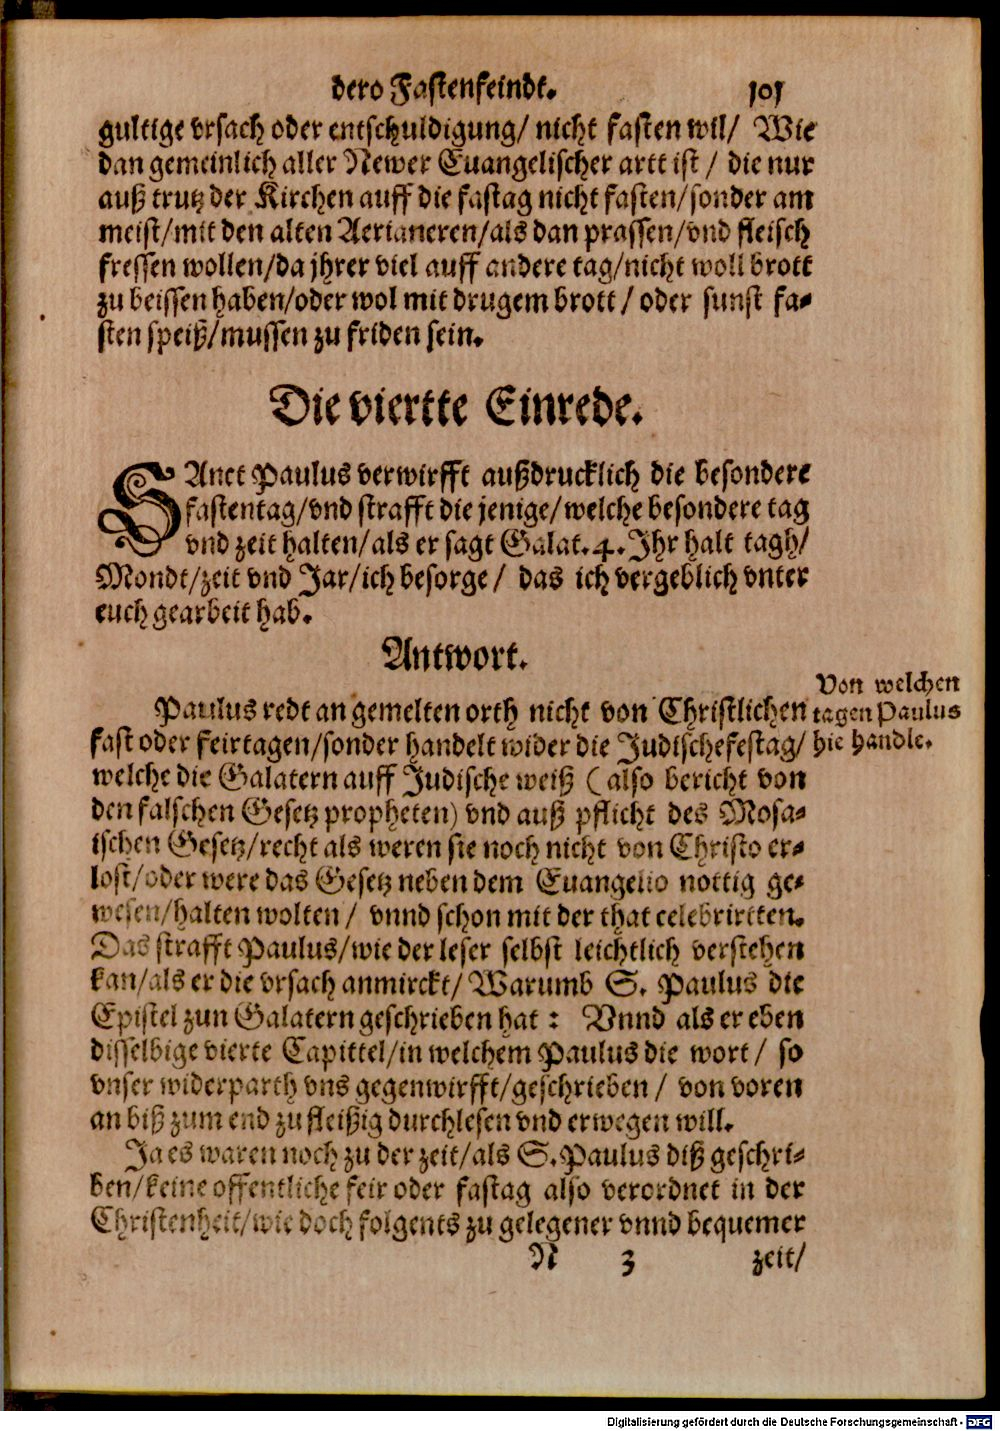 dero Fastenfeindt. 101
gultige vrsach oder entschuldigung/ nicht fasten wil/ Wie
dan gemeinlich aller Newer Euangelischer artt ist / die nur
auß trutz der Kirchen auff die fastag nicht fasten/sonder am
meist/mit den alten Aerianeren/als dan prassen/vnd fleisch
fressen wollen/da jhrer viel auff andere tag/nicht woll brott
zu beissen haben/oder wol mit drugem brott / oder sunst fa-
sten speiß/mussen zu friden sein.
Die viertte Einrede.
SAnct Paulus verwirfft außdrucklich die besondere
fastentag/vnd strafft die jenige/welche besondere tag
vnd zeit halten/als er sagt Galat. 4. Ihr halt tagh/
Mondt/zeit vnd Jar/ich besorge / das ich vergeblich vnter
euch gearbeit hab.
Antwort.
Von welchen
tagen Paulus
hie handle.
Paulus redt an gemelten orth nicht von Christlichen
fast oder feirtagen/sonder handelt wider die Judischefestag/
welche die Galatern auff Judische weiß (also bericht von
den falschen Gesetz propheten) vnd auß pflicht des Mosa-
ischen Gesetz/recht als weren sie noch nicht von Christo er-
lost/oder were das Gesetz neben dem Euangelio nottig ge-
wesen/halten wolten / vnnd schon mit der that celebrirtten.
Das strafft Paulus/wie der leser selbst leichtlich verstehen
kan/als er die vrsach anmirckt/ Warumb S. Paulus die
Epistel zun Galatern geschrieben hat : Vnnd als er eben
disselbige vierte Capittel/in welchem Paulus die wort / so
vnser widerparth vns gegenwirfft/geschrieben / von voren
an biß zum end zu fleißig durchlesen vnd erwegen will.
Ja es waren noch zu der zeit/als S. Paulus diß geschri-
ben/keine offentliche feir oder fastag also verordnet in der
Christenheit/wie doch folgents zu gelegener vnnd bequemer
N 3 zeit/
Digitalisierung gefördert durch die Deutsche Forschungsgemeinschaft - DFG